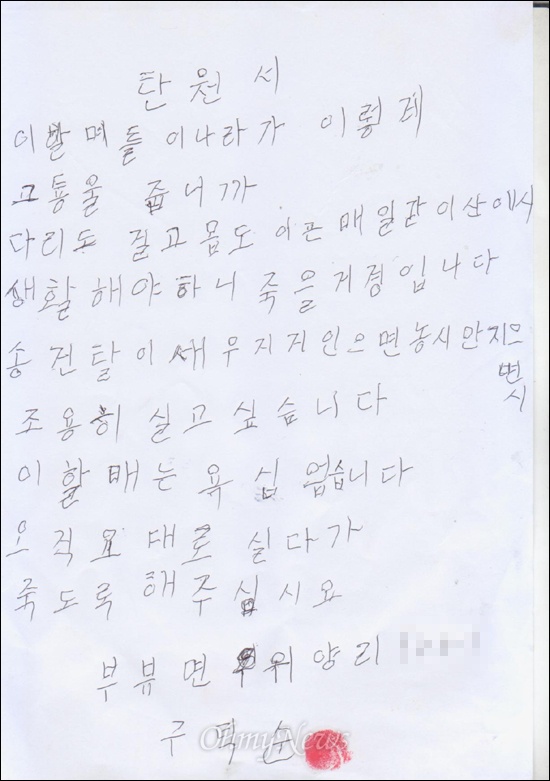 탄원서
이할메들 이나라가 이렇레
고통울 줍니까
다리도 절고 몸도 아픈 매일같 이산에서
생활해야하니 죽을지경입니다
송전탑이 세우지지 안으면 농시 안 지으면시
조용히 실고 싶습니다
이 할매는 욕십 업습니다
오직 요대로 실다가
죽도록 해주십시요
부뷰면 위양리
OhmyNews